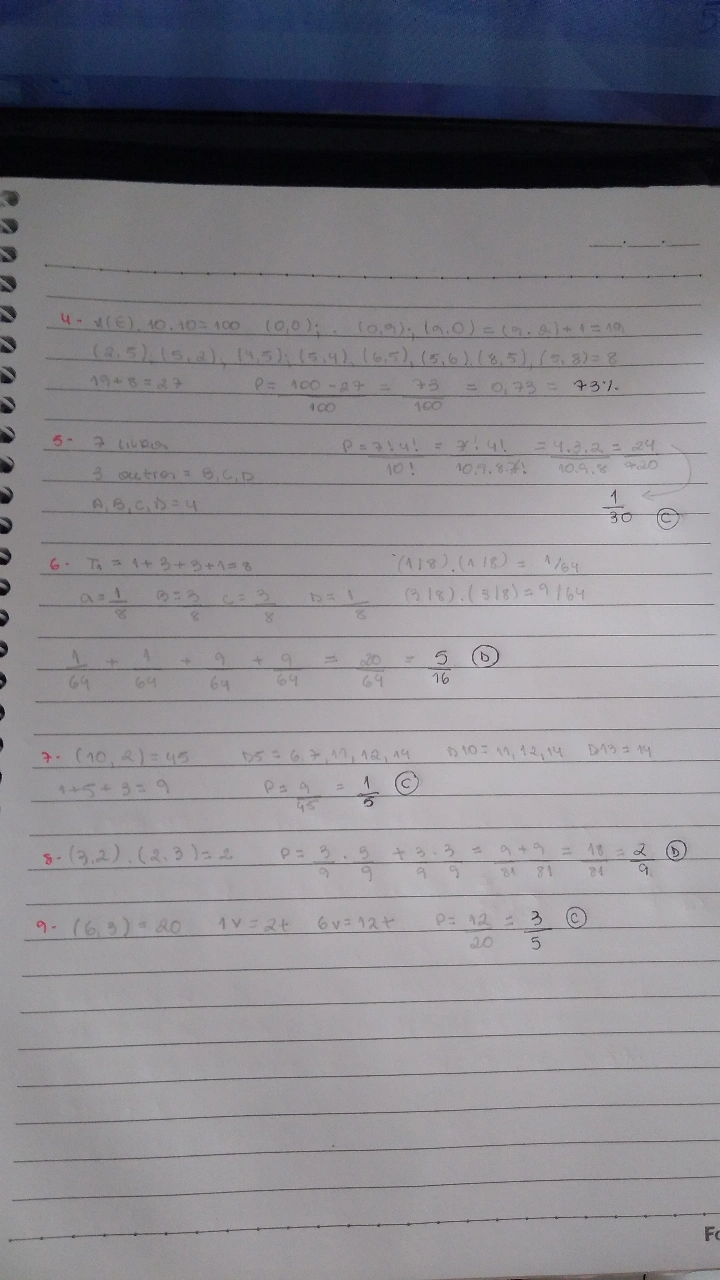 4- n(E). 10.10=100 (0,0); . (0,9); (9,0) = (9.2)+1=19
(2,5), (5,2), (4,5); (5,4), (6,5), (5,6), (8,5), (5,8)=8
19+8=27 P= 100-27/100 = 73/100 = 0,73 = 73%
5- 7 livros P=7!4!/10! = 7!4!/10.9.8.7! = 4.3.2/10.9.8 = 24/720
3 outros = B,C,D
A,B,C,D=4 1/30 C
6- = 1+3+3+1=8 (1/8).(1/8) = 1/64
a=1/8 B=3/8 C=3/8 D=1/8 (3/8).(3/8)=9/64
1/64 + 1/64 + 9/64 + 9/64 = 20/64 = 5/16 D
7- (10,2)=45 D5=6,7,11,12,14 D10=11,12,14 D13=14
1+5+3=9 P=9/45 = 1/5 C
8- (3,2).(2.3)=2 P= 3/9 . 3/9 + 3/9 . 3/9 = 9/81 + 9/81 = 18/81 = 2/9 D
9- (6,3)=20 1v=2t 6v=12t P=12/20 = 3/5 C